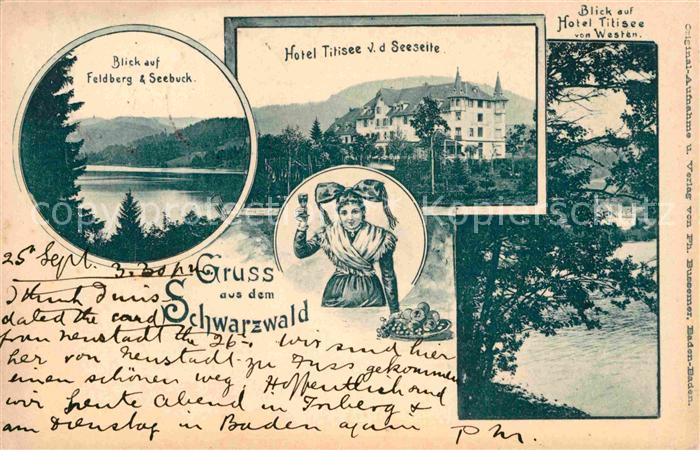 Blick auf
Feldberg & Seebuck.
Hotel Titisee v. d Seeseite.
Blick auf
Hotel Titisee
von Westen.
Original-Aufnahme u. Verlag von Ph. Bussemer, Baden-Baden.
Gruss
aus dem
Schwarzwald
25th Sept. 3.30 pm
I think I mis-
dated the card
from Neustadt the 26- wir sind hier
her von Neustadt zu Fuss gekommen
einen schönen weg, Hoffentlich sind
wir heute abend in &
am Dienstag in Baden again P M.